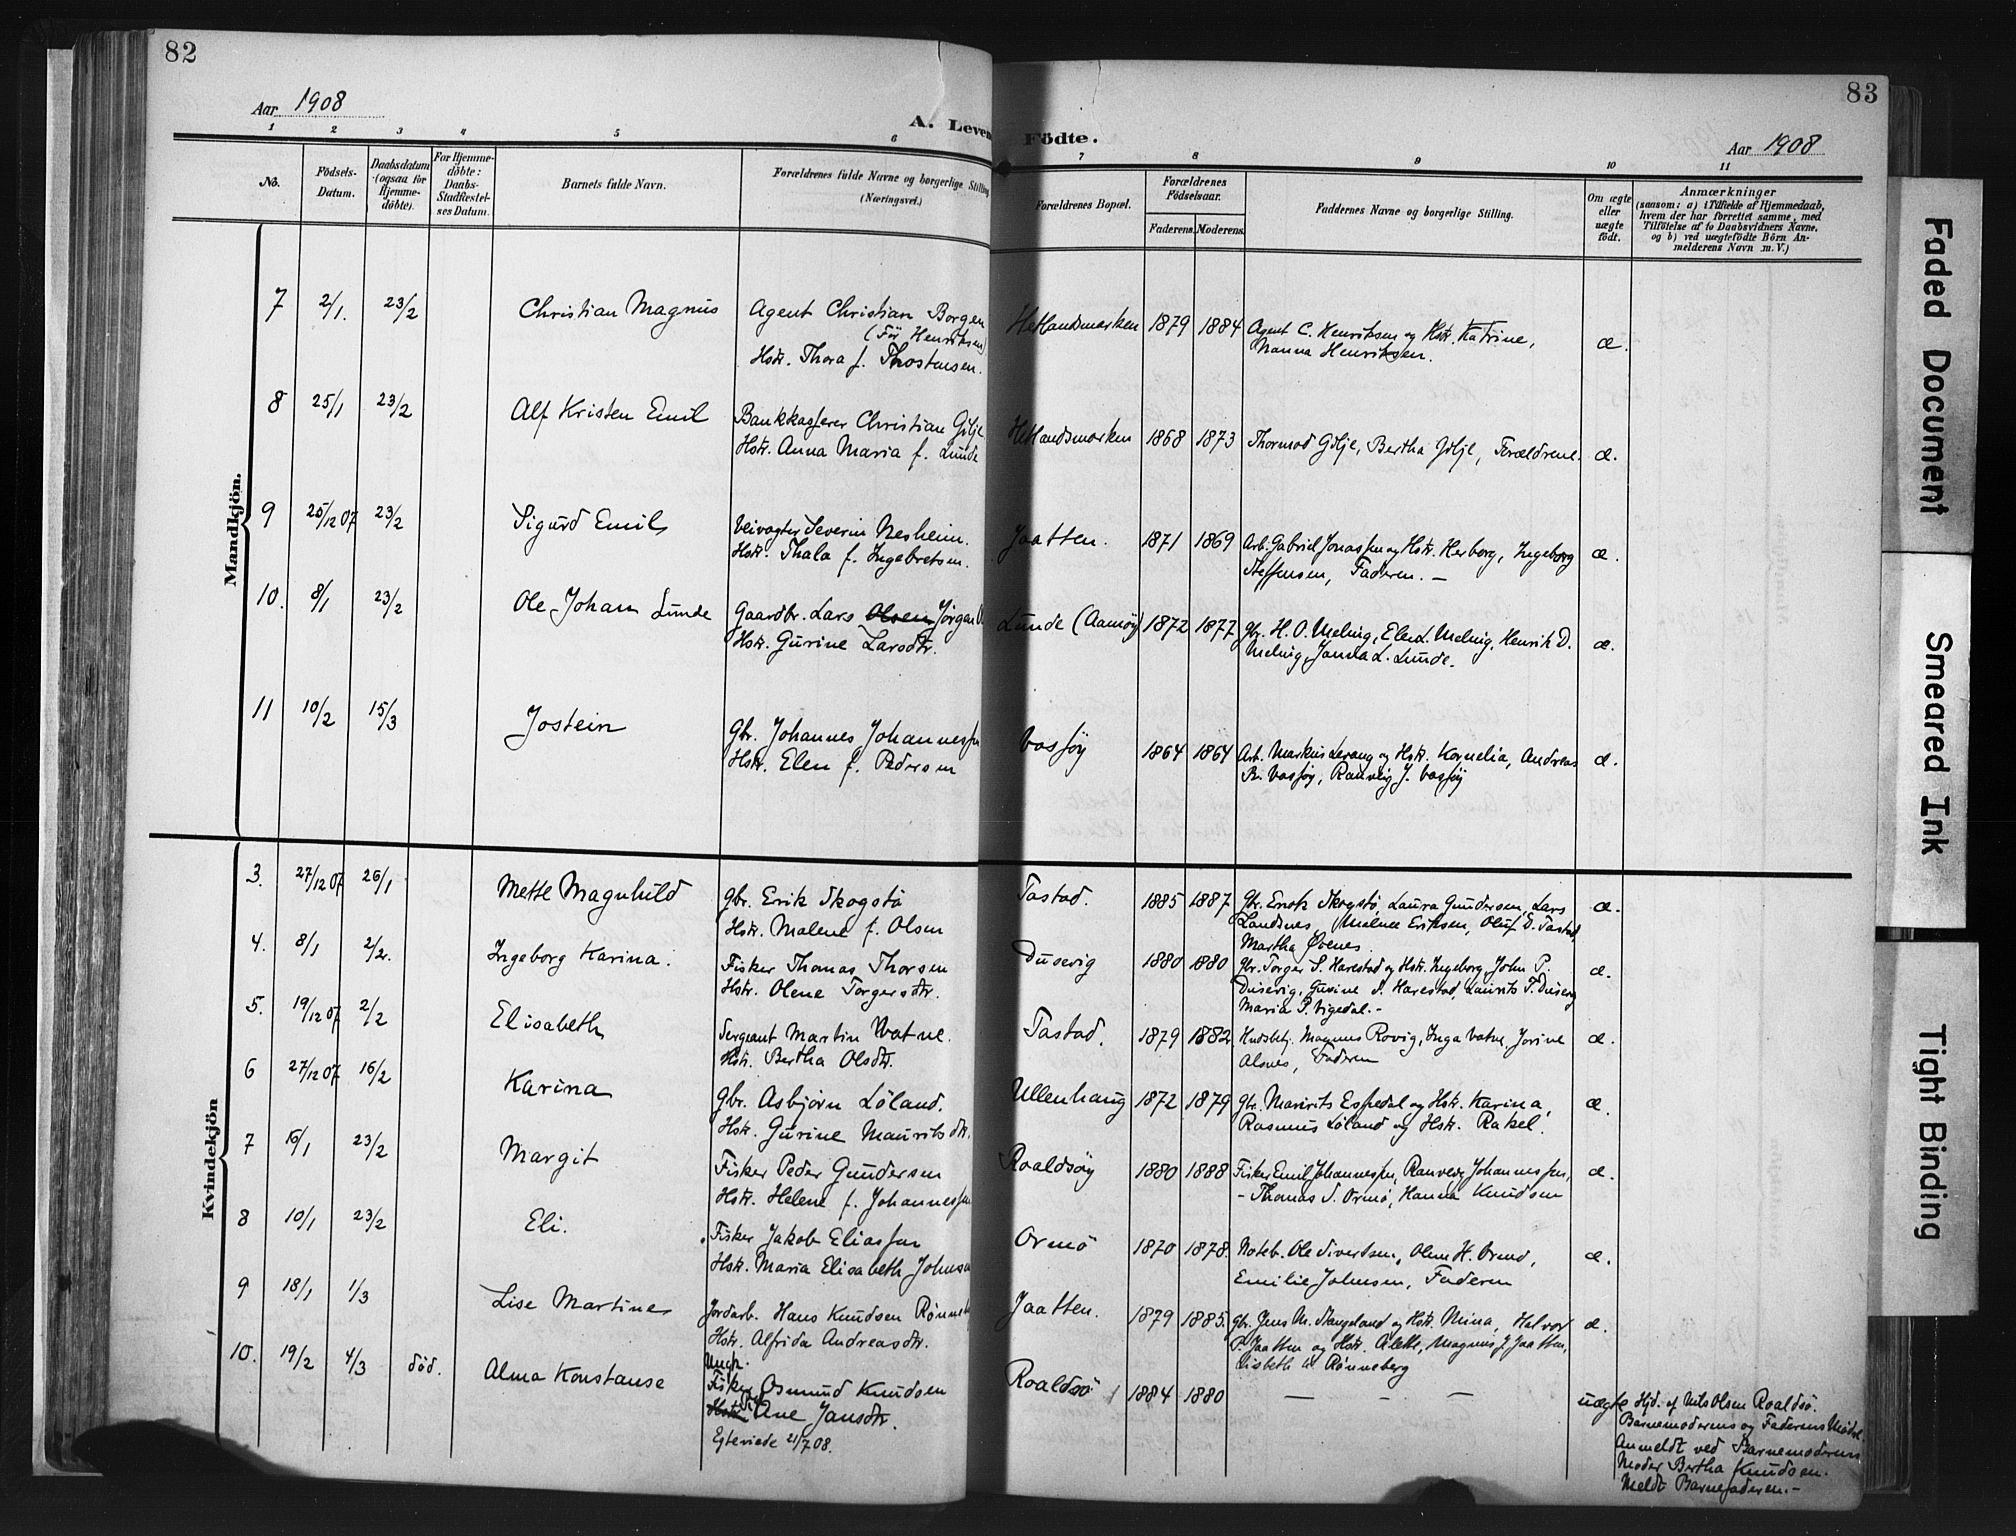 82
Aar 1908
A. Leven
1 2 3 4 5 6
No.
Födsels-
Datum.
Daabsdatum
(ogsaa for
Hjemme-
döbte).
For Hjemme-
döbte:
Daabs-
Stadfæstel-
ses Datum.
Barnets fulde Navn.
Forældrenes fulde Navne og borgerlige Stilling
(Næringsvei.)
Mandkjön.
7 2/1. 23/2 Christian Magnus Agent Christian Borgen
(Før Henriksen)
Hstr. Thora f. Thostensen.
8 25/1 23/2 Alf Kristen Emil Bankkasserer Christian Gilje
Hstr. Anna Maria f. Lunde
9 25/12 07 23/2 Sigurd Emil Veivogter Severin Nesheim.
Hstr. Thala f. Ingebretsen.
10. 8/1 23/2 Ole Johan Lunde Gaardbr. Lars Olsen Jørgen
Hstr. Gurine Larsdtr.
11 10/2 15/3 Jostein Gbr. Johannes Johannessen
Hstr. Elen f. Pedersen
Kvindekjön
3. 27/12 07 26/1 Mette Magnhild Gbr. Erik Skogstø
Hstr. Malene f. Olsen
4. 8/1 2/2. Ingeborg Karina. Fisker Thomas Thorsen
Hstr. Olene Torgersdtr.
5. 19/12 07 2/2 Elisabeth Sergeant Martin Vatne.
Hstr. Bertha Olsdtr.
6 27/12 07 16/2 Karina Gbr. Asbjørn Löland.
Hstr. Gurine Mauritsdtr.
7 15/1 23/2 Margit Fisker Peder Gundersen
Hstr. Helene f. Johannessen
8 10/1 23/2 Eli. Fisker Jakob Eliassen
Hstr. Maria Elisabeth Johnsen
9 18/1 1/3 Lise Martine Jordarb. Hans Knudsen Rønneb
Hstr. Alfrida Andreasdtr.
10. 19/2 4/3 död. Alma Konstanse Ungk.
Fisker Osmund Knudsen
Hstr. Ane Jansdtr.
Egteviede 21/7 08.
83
Födte.
Aar 1908
7 8 9 10 11
Forældrenes Bopæl.
Forældrenes
Födselsaar.
Faderens. Moderens.
Faddernes Navne og borgerlige Stilling.
Om ægte
eller
uægte
födt.
Anmærkninger
(saasom: a) i Tilfælde af Hjemmedaab,
hvem der har forrettet samme, med
Tilföielse af to Daabsvidners Navne,
og b) ved uægtefödte Börn An-
melderens Navn m. V.)
Hetlandsmarken 1879 1884 Agent C. Henriksen og Hstr. Katrine, æ.
Nanna Henriksen.
Hetlandsmarken 1868 1873 Thormod Gilje, Bertha Gilje, Forældrene. æ.
Jaatten. 1871 1869 Arb. Gabriel Jonassen og Hstr. Herborg, Ingeborg æ.
Steffensen, Faderen. –
Lunde (Aamøy) 1872 1877 Gbr. H. O. Meling, Elen L. Meling, Henrik D. æ.
Meling, Janna L. Lunde.
Vasøy 1864 1864 Arb. Markus Lerang og Hstr. Kornelia, Andreas æ.
Vasøy, Ranveig J. Vasøy
Tastad. 1885 1887 Gbr. Enok Skogstø, Laura Gundersen, Lars æ.
Landsnes, Malene Eriksen, Oluf E. Tastad,
Martha Øvenes.
Dusevig 1880 1880 Gbr. Torger S. Harestad og Hstr. Ingeborg, John P. æ.
Dusevig, Gurine S. Harestad, Laurits T. Dusevig
Maria P. Vigedal. –
Tastad. 1879 1882 Magnus Rovig, Inga Vatne, Jorine æ.
Alsnes, Faderen
Ullenhaug 1872 1879 Gbr. Maurits Espedal og Hstr. Karina, æ.
Rasmus Löland og Hstr. Rakel.
Roaldsøy 1880 1888 Fisker Emil Johannessen, Ranveig Johannessen, æ.
– Thomas S. Ormø, Hanna Knudsen
Ormø 1870 1878. Noteb. Ole Sivertsen, Olene H. Ormø, æ.
Emilie Johnsen, Faderen
Jaatten. 1879 1885. Gbr. Jens M. Stangeland og Hstr. Mina, Halvor æ.
P. Jaatten og Hstr. Alette, Magnus J. Jaatten,
Lisbeth Rønneberg
Roaldsø 1884 1880 – – – uægte Hjd. af Nils Olsen Roaldsø.
Barnemoderens og Faderens Mødre.
Anmeldt ved Barnemoderens
Moder Bertha Knudsen.
Meldt Barnefaderen. –
Faded Document
Smeared Ink
Tight Binding